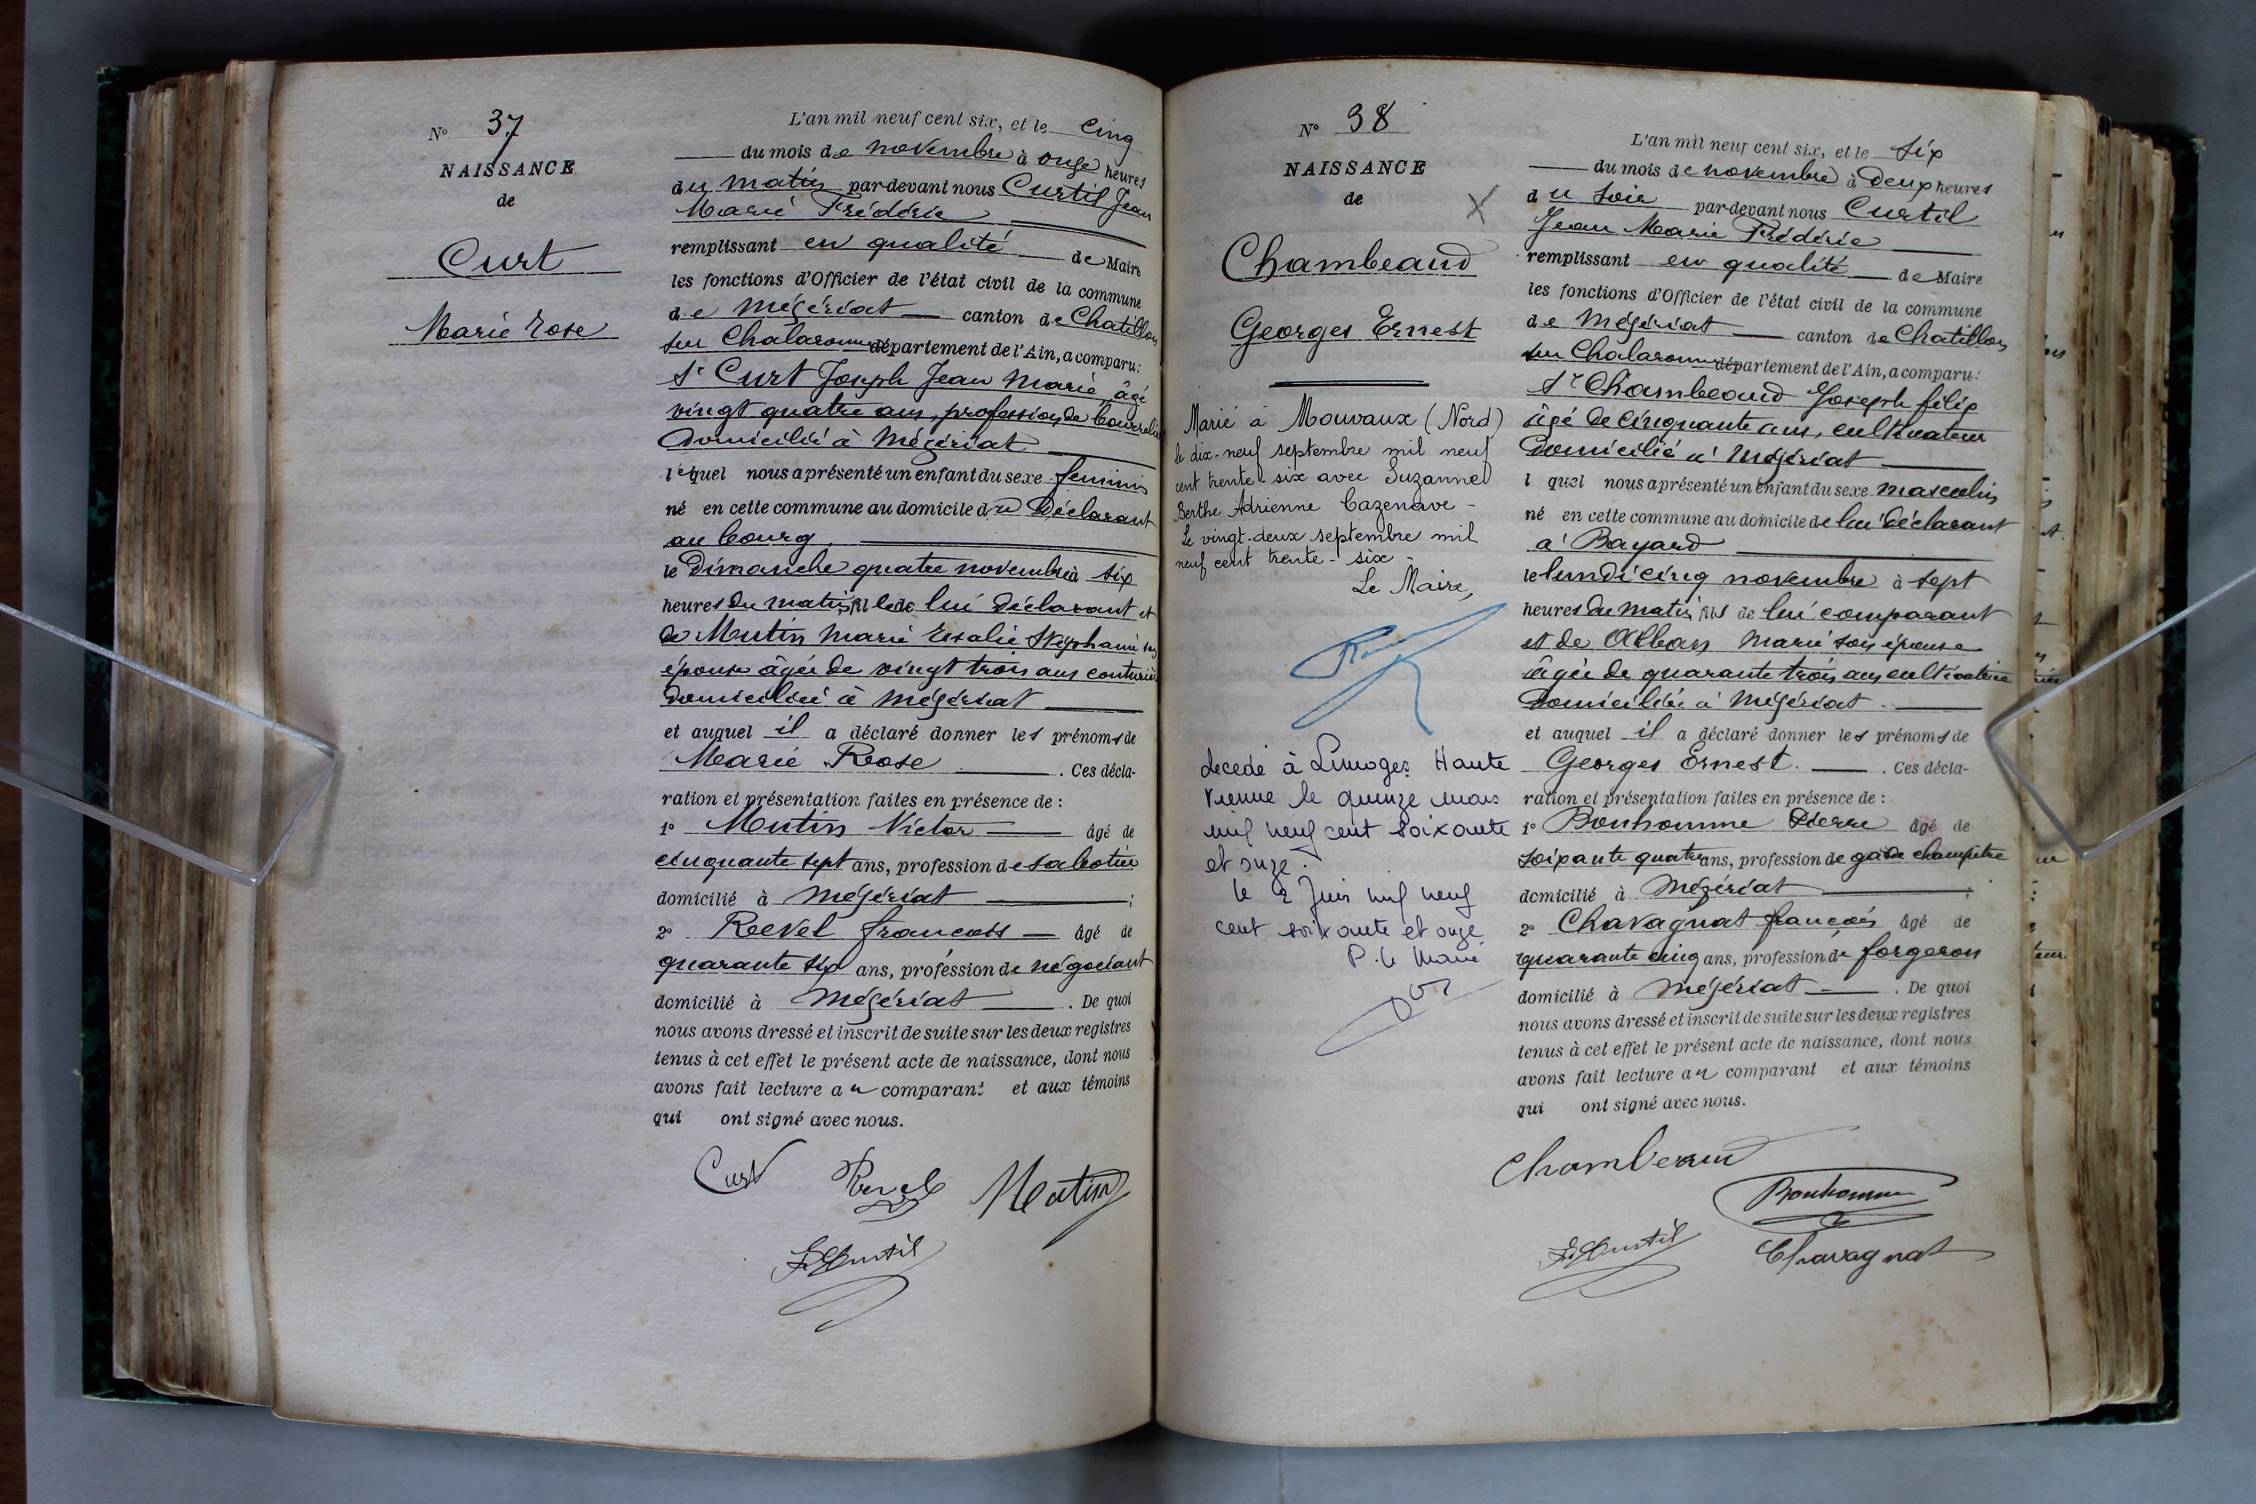 N° 37
NAISSANCE
de
Curt
Marie Rose
L'an mil neuf cent six, et le cinq
du mois de novembre à onze heures
du matin par-devant nous Curtil Jean
Marie Frédéric
remplissant en qualité de Maire
les fonctions d'Officier de l'état civil de la commune
de Mézériat canton de Chatillon
sur Chalaronne département de l'Ain, a comparu:
Sr Curt Joseph Jean Marie, âgé
vingt quatre ans, profession de bourrelier
domicilié à Mézériat
lequel nous a présenté un enfant du sexe feminin
né en cette commune au domicile du Déclarant
au bourg.
le Dimanche quatre novembre à six
heures du matin, fille de lui déclarant et
de Mutin Marie Rosalie Stéphanie son
épouse âgée de vingt trois ans couturière
domiciliée à Mézériat
et auquel il a déclaré donner les prénoms de
Marie Rose . Ces décla-
ration et présentation faites en présence de :
1° Mutin Victor âgé de
cinquante sept ans, profession de sabotier
domicilié à Mézériat ;
2° Revel francois âgé de
quarante six ans, profession de négociant
domicilié à Mézériat . De quoi
nous avons dressé et inscrit de suite sur les deux registres
tenus à cet effet le présent acte de naissance, dont nous
avons fait lecture au comparant et aux témoins
qui ont signé avec nous.
Curt Revel Mutin
F. Curtil
N° 38
NAISSANCE
de
Chambeaud
Georges Ernest
Marié à Mouvaux (Nord)
le dix-neuf septembre mil neuf
cent trente six avec Suzanne
Berthe Adrienne Cazenave -
Le vingt-deux septembre mil
neuf cent trente-six -
Le Maire,
décédé à Limoges Haute
Vienne le quinze mars
mil neuf cent soixante
et onze.
le 2 Juin mil neuf
cent soixante et onze
P. le Maire
L'an mil neuf cent six, et le six
du mois de novembre à Deux heures
du soir par-devant nous Curtil
Jean Marie Frédéric
remplissant en qualité de Maire
les fonctions d'Officier de l'état civil de la commune
de Mézériat canton de Chatillon
sur Chalaronne département de l'Ain, a comparu:
Sr Chambeaud Joseph filip
âgé de cinquante ans, cultivateur
domicilié à Mézériat
l quel nous a présenté un enfant du sexe masculin
né en cette commune au domicile de lui déclarant
à Bayard
le lundi cinq novembre à sept
heures du matin, fils de lui comparant
et de Alban Marie son épouse
âgée de quarante trois ans cultivatrice
domiciliée à Mézériat
et auquel il a déclaré donner les prénoms de
Georges Ernest. . Ces décla-
ration et présentation faites en présence de :
1° Bonhomme Pierre âgé de
soixante quatre ans, profession de garde champêtre
domicilié à Mézériat ;
2° Chavagnat françois âgé de
quarante cinq ans, profession de forgeron
domicilié à Mézériat . De quoi
nous avons dressé et inscrit de suite sur les deux registres
tenus à cet effet le présent acte de naissance, dont nous
avons fait lecture au comparant et aux témoins
qui ont signé avec nous.
Chambeaud
Bonhomme
F. Curtil Chavagnat